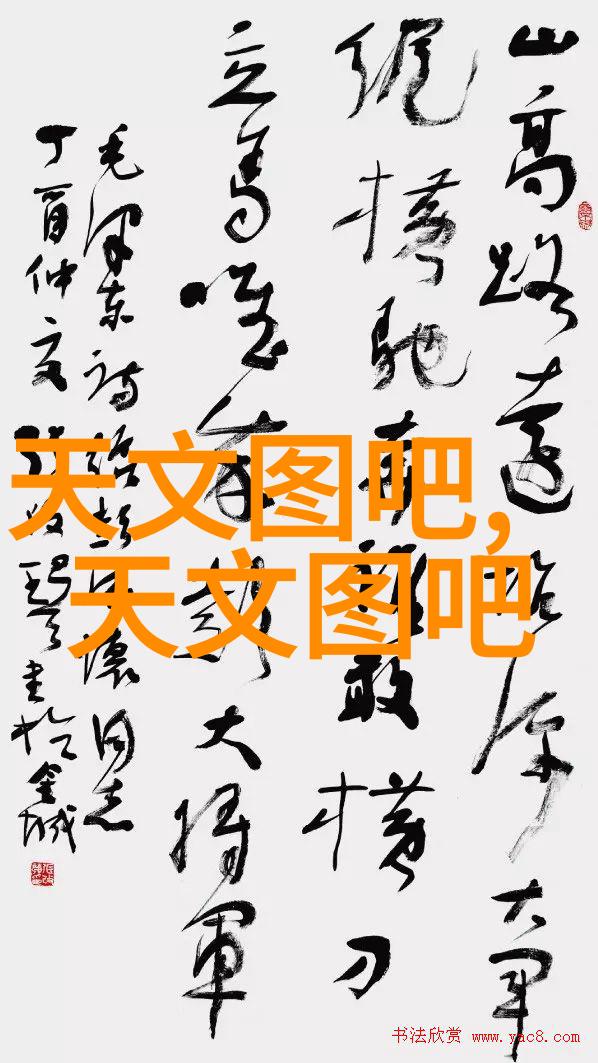 山高路遠坑深大军
纵横驰奔谁敢横刀
立马唯我彭大将軍
毛泽东诗给彭德懷同志
丁酉仲夏张改琴书於金城
天文图吧,
天文图吧
书法欣赏 www.yac8.com